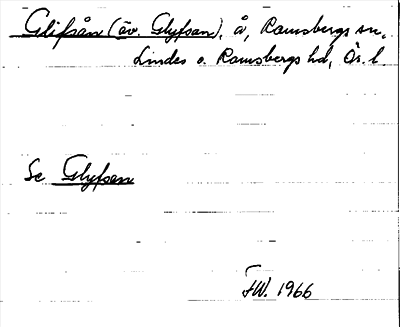 Glifsån (äv. Glyfsan), å, Ramsbergs sn,
Lindes o. Ramsbergs hd, Ör. l.
Se Glyfsan
FW. 1966